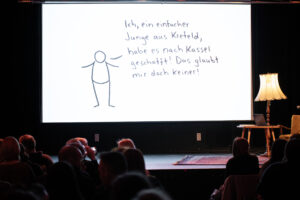 Ich, ein einfacher
Junge aus Krefeld,
habe es nach Kassel
geschafft! Das glaubt
mir doch keiner!